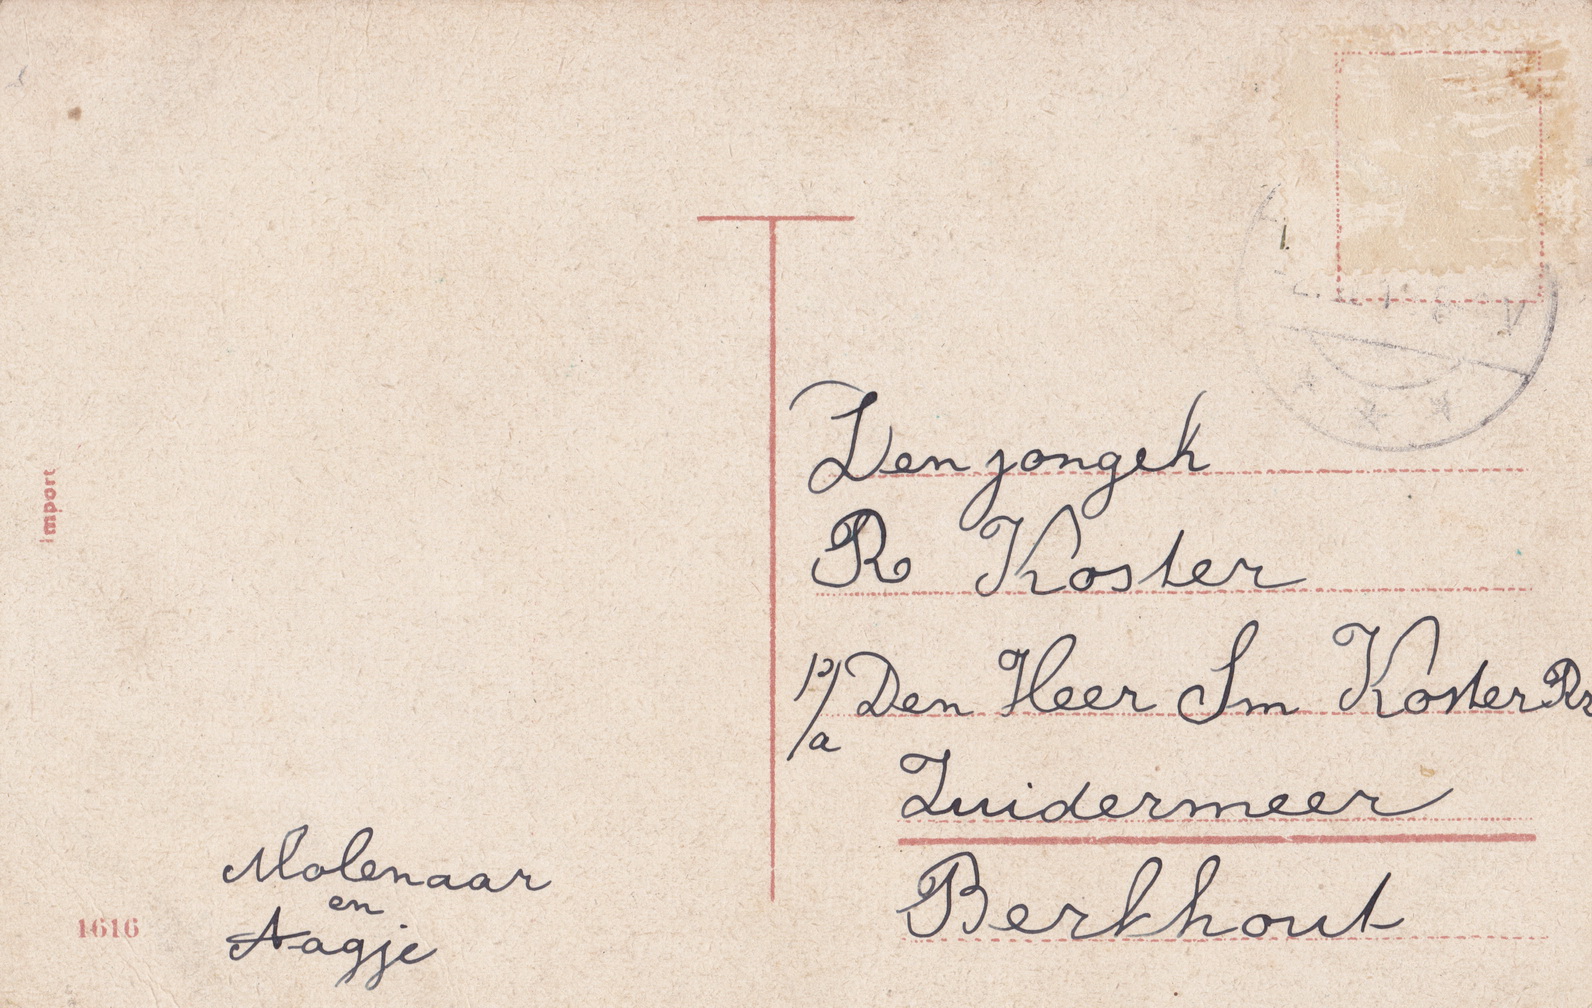 Import
1616
Molenaar
en
Aagje
Den jongeh
R Koster
p/a Den Heer Sm Koster Rz
Zuidermeer
Berkhout